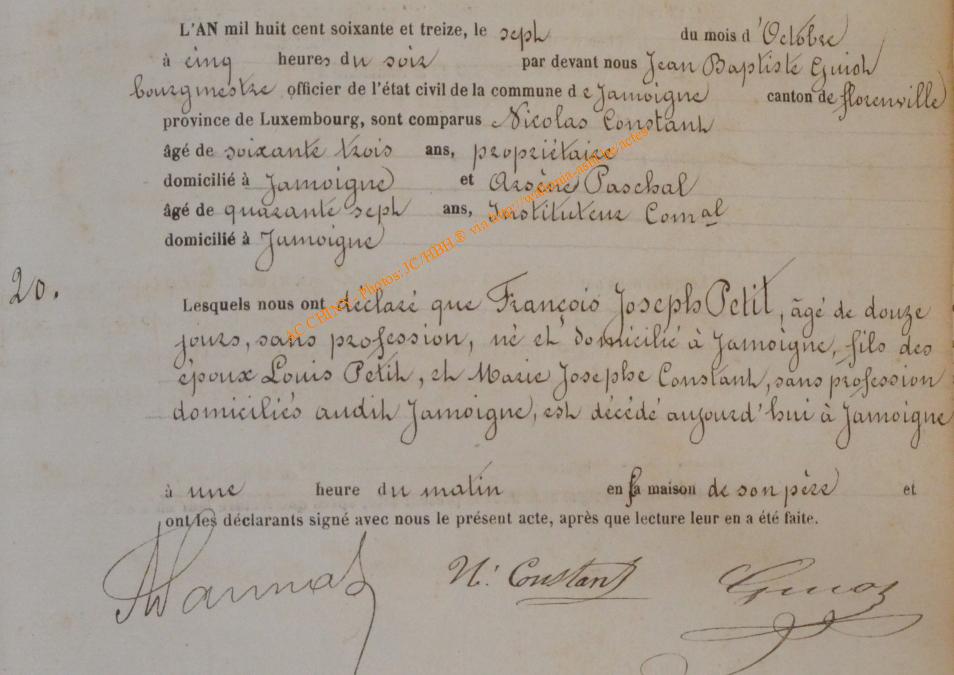 L'AN mil huit cent soixante et treize, le sept du mois d'Octobre
à cinq heures du soir par devant nous Jean Baptiste Guiot
bourgmestre officier de l'état civil de la commune de Jamoigne canton de florenville
province de Luxembourg, sont comparus Nicolas Constant
âgé de soixante trois ans, propriétaire
domicilié à Jamoigne et Arsène Paschal
âgé de quarante sept ans, Instituteur Comal
domicilié à Jamoigne
20.
Lesquels nous ont déclaré que François Joseph Petit, âgé de douze
jours, sans profession, né et domicilié à Jamoigne, fils des
époux Louis Petit, et Marie Josephe Constant, sans profession
domiciliés audit Jamoigne, est décédé aujourd'hui à Jamoigne
à une heure du matin en sa maison de son père et
ont les déclarants signé avec nous le présent acte, après que lecture leur en a été faite.
N. Constant
AC CHINY - Photos: JC/HBH © via